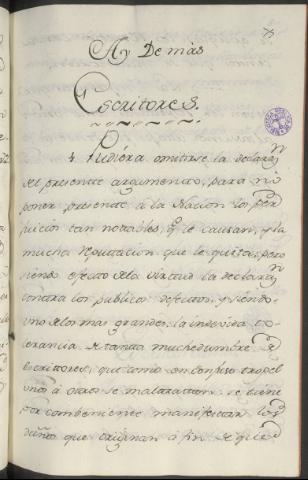 Ay De màs
Escritores.
1. Pudiéra omitirse la declaraⁿ
del presente argumento, para no
poner presente à la Nacion los per
juicios tan notables, q.e le causan, y la
mucha reputacion que le quita; pero
siendo efecto dela virtud la declaraⁿ
contra los publicos defectos, y siendo
uno delos mas grandes, la indevida to
lerancia de tanta muchedumbre de
Escritores, que como en confuso tropel
unos à otros se maltratan: se tiene
por combeniente manifestar los
daños que originan à fin de que